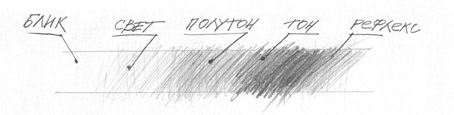 БЛИК СВЕТ ПОЛУТОН ТОН РЕФЛЕКС